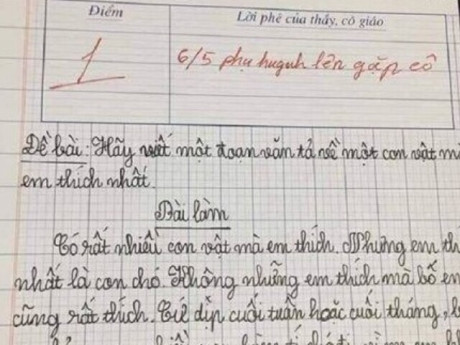 Điểm
Lời phê của thầy, cô giáo
1
6/5 phụ huynh lên gặp cô
Đề bài: Hãy viết một đoạn văn tả về một con vật mà
em thích nhất.
Bài làm
Có rất nhiều con vật mà em thích. Nhưng em th
nhất là con chó. Không những em thích mà bố em
cũng rất thích. Cứ dịp cuối tuần hoặc cuối tháng,